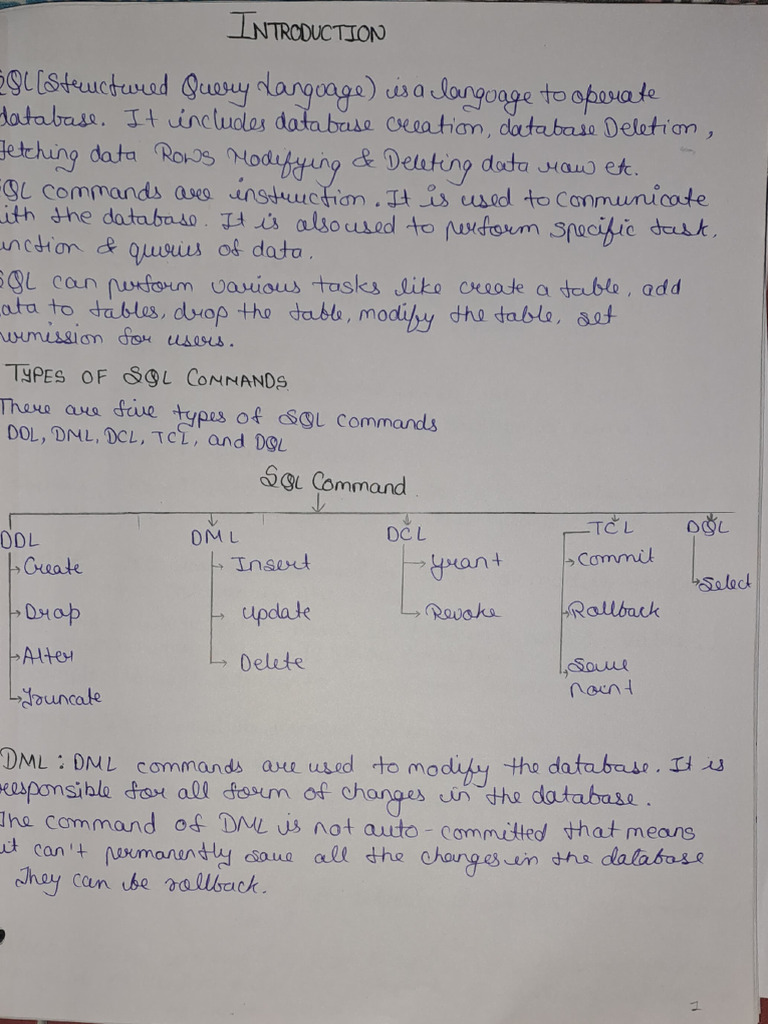 INTRODUCTION
SQL (Structured Query Language) is a language to operate
database. It includes database creation, database Deletion,
fetching data Rows Modifying & Deleting data raw etc.
SQL commands are instruction. It is used to communicate
with the database. It is also used to perform specific task,
function & quries of data.
SQL can perform various tasks like create a table, add
data to tables, drop the table, modify the table, set
permission for users.
TYPES OF SQL COMMANDS
There are five types of SQL commands
DDL, DML, DCL, TCL, and DQL
SQL Command
DDL DML DCL TCL DQL
Create Insert Grant Commit Select
Drop Update Revoke Rollback
Alter Delete Save
Truncate Point
DML : DML commands are used to modify the database. It is
responsible for all form of changes in the database.
The command of DML is not auto-committed that means
it can't permanently save all the changes in the database
They can be rollback.
1